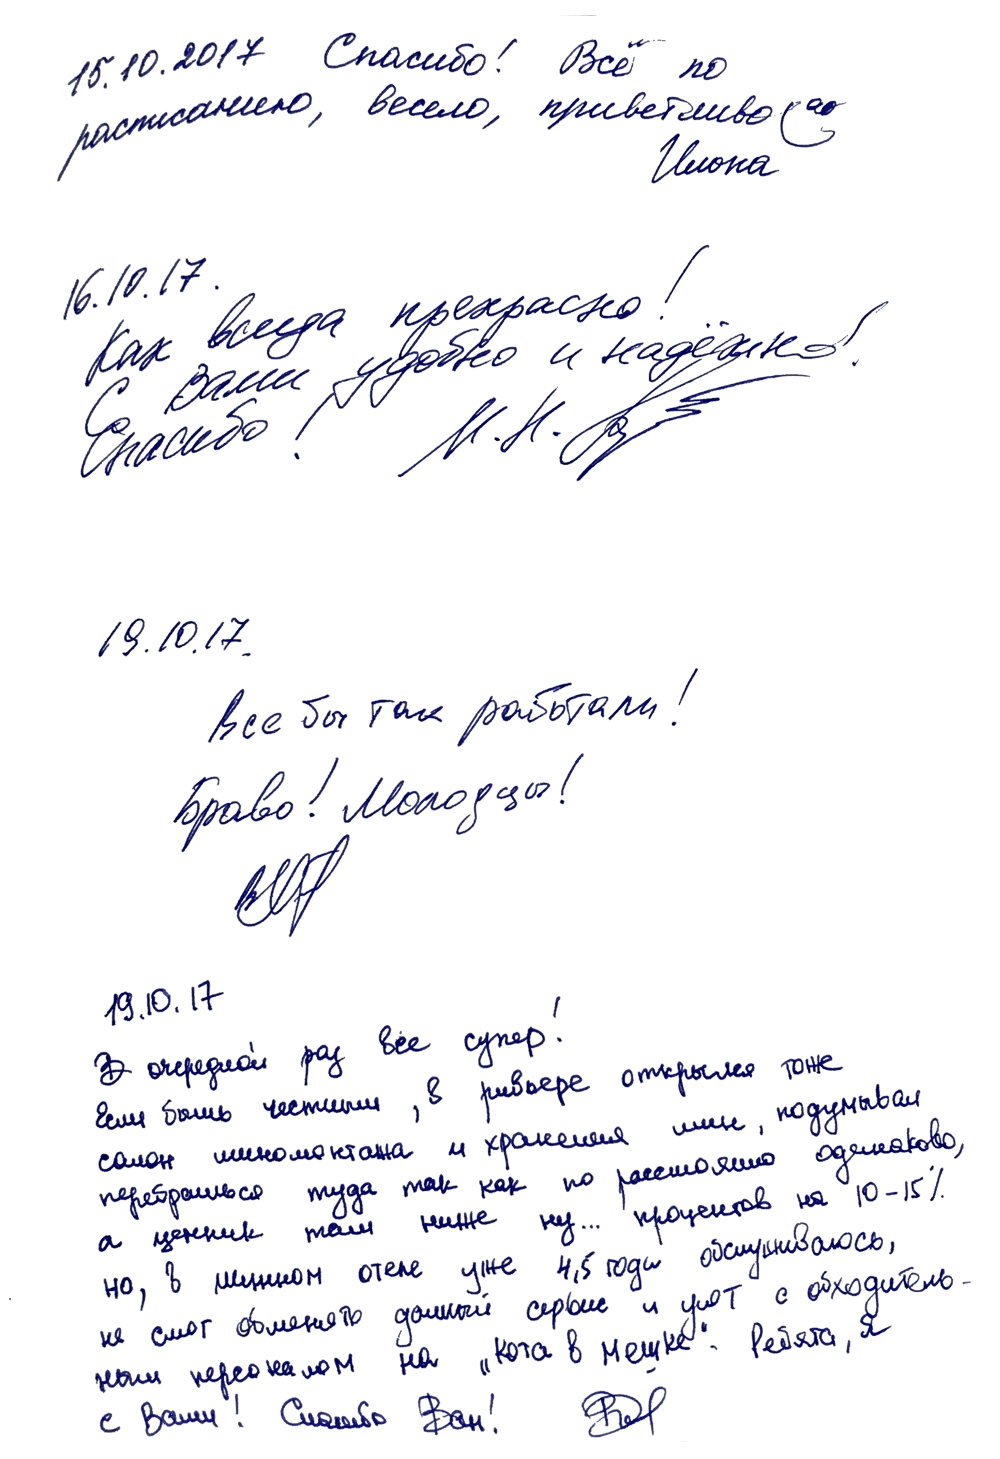 15.10.2017 Спасибо! Всё по
расписанию, весело, приветливо
Илона
16.10.17.
Как всегда прекрасно!
С Вами удобно и надёжно!
Спасибо! М.Н.
19.10.17.
Все бы так работали!
Браво! Молодцы!
19.10.17
В очередной раз все супер!
Если быть честным, в ривьере открылся тоже
салон шиномонтажа и хранения шин, подумывал
перебраться туда так как по расстоянию одинаково,
а ценник там ниже ну... процентов на 10-15%.
но, в шинном отеле уже 4,5 года обслуживаюсь,
не смог обменять данный сервис и уют с обходитель-
ным персоналом на „кота в мешке“. Ребята, я
с Вами! Спасибо Вам!